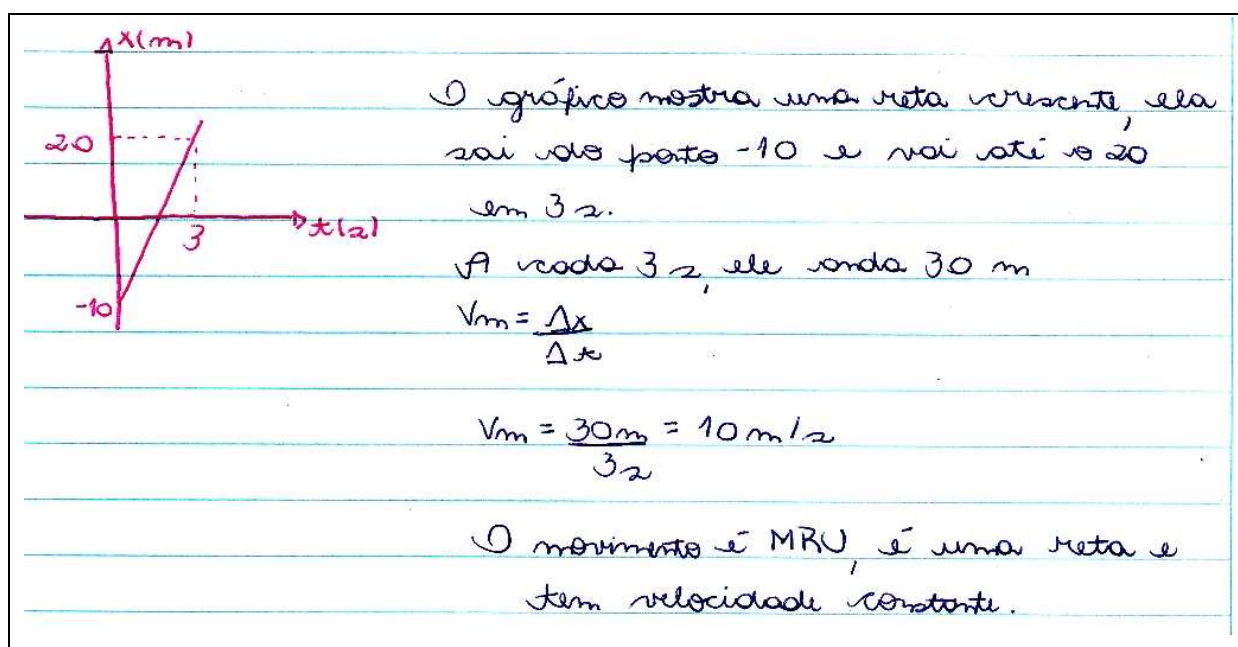 x(m)
20
3
t(s)
-10
O gráfico mostra uma reta crescente, ela
sai do ponto -10 e vai até o 20
em 3 s.
A cada 3 s, ele anda 30 m
Vm = Δx
Δt
Vm = 30m = 10 m/s
3s
O movimento é MRU, é uma reta e
tem velocidade constante.